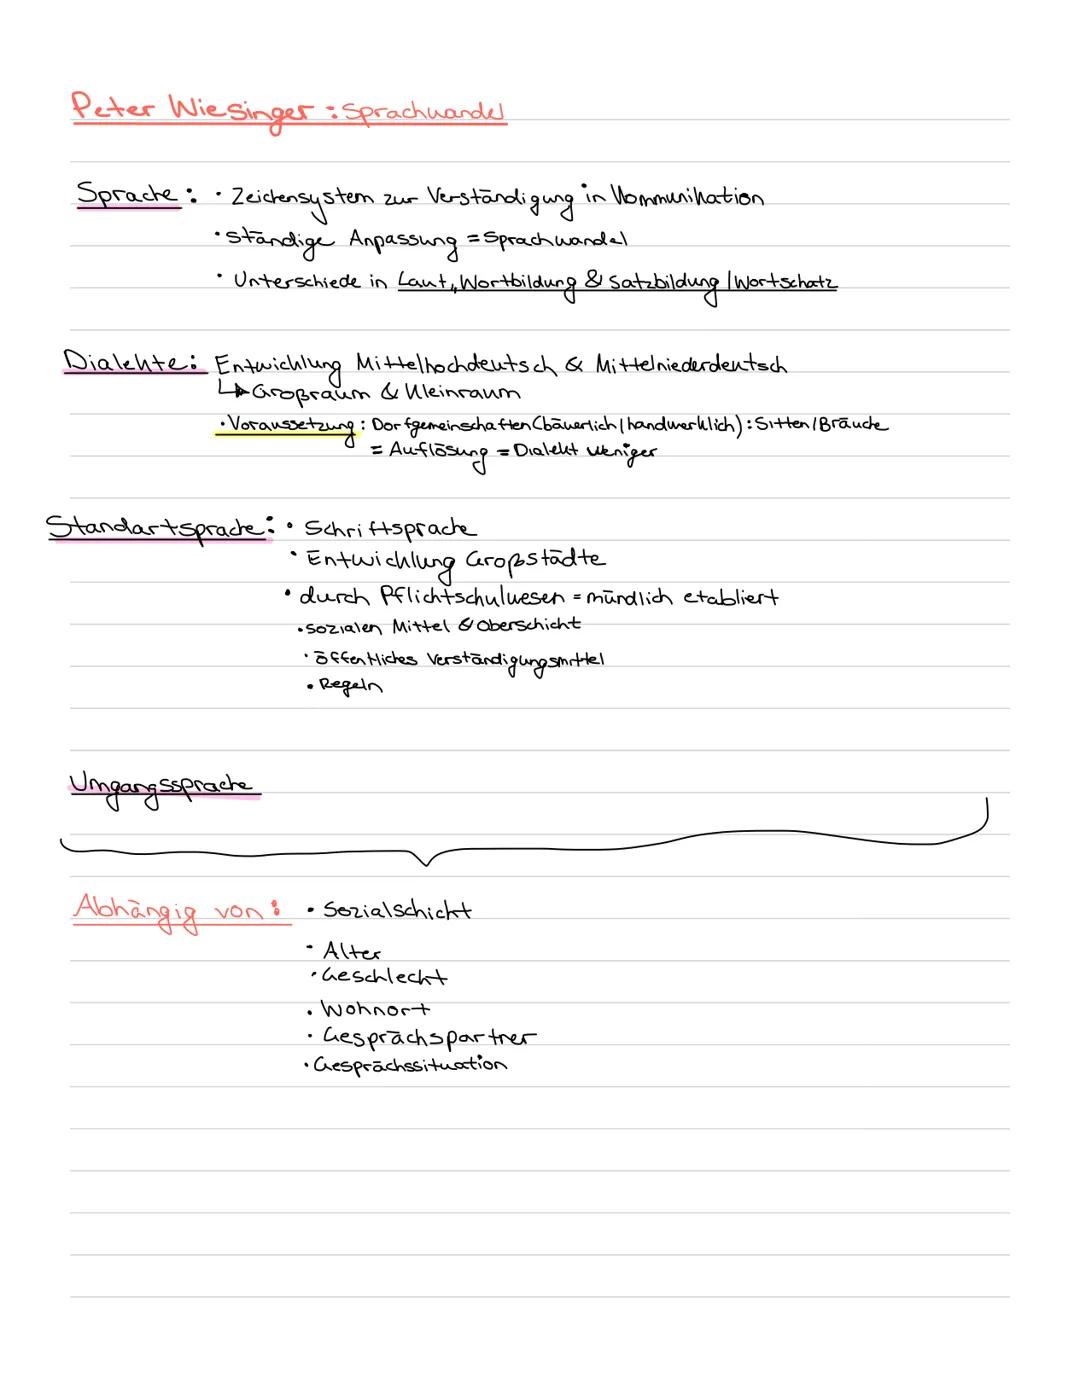 Peter Wiesinger : Sprachwandel
Sprache : • Zeichensystem zur Verständigung in Kommunikation
• ständige Anpassung = Sprachwandel
• Unterschiede in Laut, Wortbildung & Satzbildung / Wortschatz
Dialekte: Entwicklung Mittelhochdeutsch & Mittelniederdeutsch
↳ Großraum & Kleinraum
• Voraussetzung : Dorfgemeinschaften (bäuerlich / handwerklich) : Sitten / Bräuche
= Auflösung = Dialekt weniger
Standartsprache: • Schriftsprache
• Entwicklung Großstädte
• durch Pflichtschulwesen = mündlich etabliert
• sozialen Mittel & Oberschicht
• öffentliches Verständigungsmittel
• Regeln
Umgangssprache
Abhängig von : • Sozialschicht
• Alter
• Geschlecht
• Wohnort
• Gesprächspartner
• Gesprächssituation